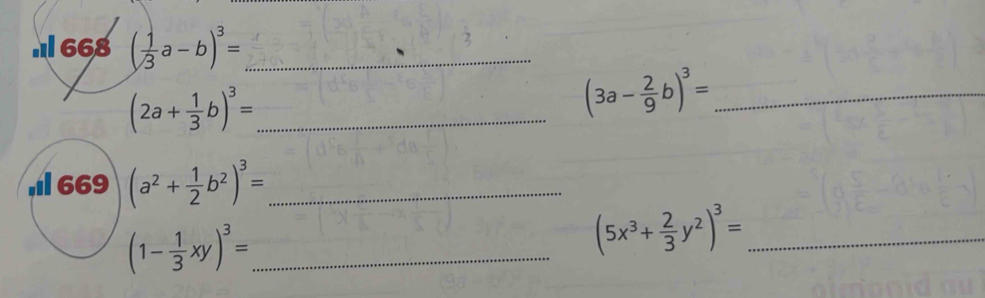 668 (1/3 a − b)³ = ........
(2a + 1/3 b)³ = ........ (3a − 2/9 b)³ = ........
669 (a² + 1/2 b²)³ = ........
(1 − 1/3 xy)³ = ........ (5x³ + 2/3 y²)³ = ........